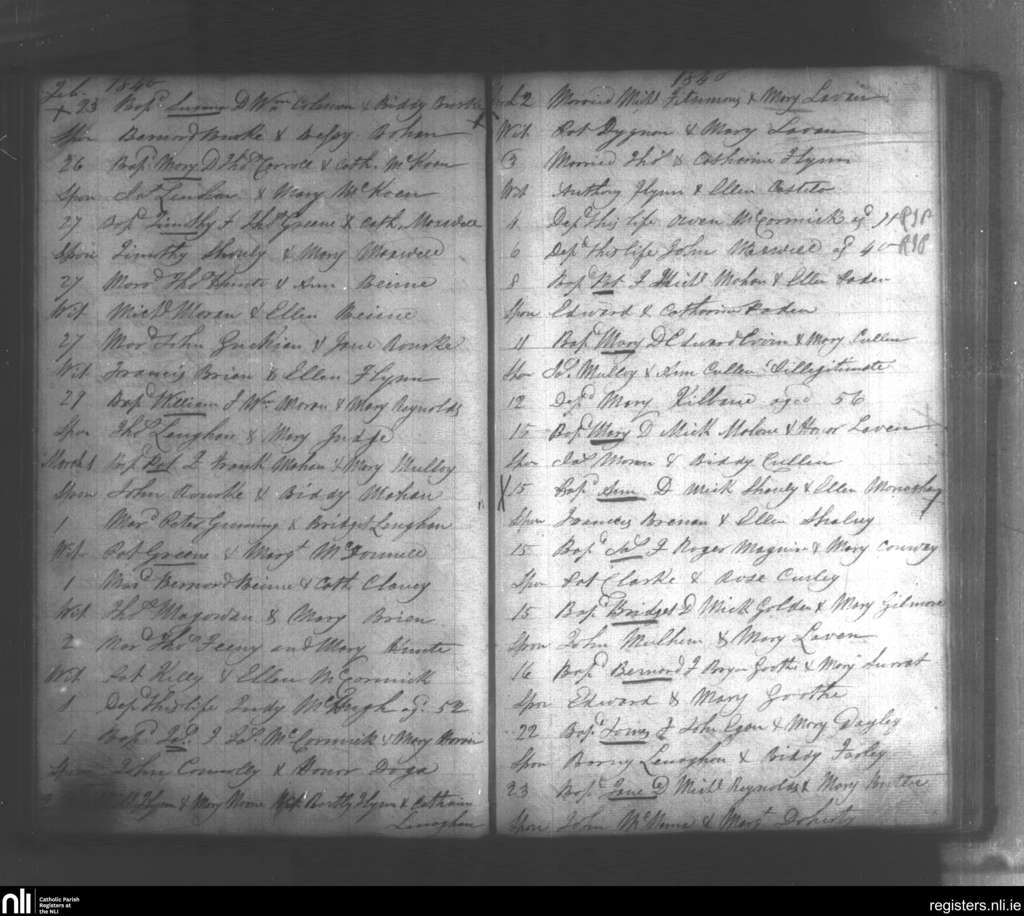 26. 1840
+ 23 Bap.d Susanna D Wm Coleman & Biddy Rourke
Spon Bernard Rourke & Betsy Bohan
26 Bap.d Mary D Tho.s Carroll & Cath. McKeon
Spon Ja.s Lenehan & Mary McKeon
27 Bap.d Timothy f Tho.s Greene & Cath. Maxwell
Spon Timothy Shouly & Mary Maxwell
27 Mar.d Tho.s & Ann Beirne
Wit Mich.l Moran & Ellen Beirne
27 Mar.d John Guckian & Jane Rourke
Wit Francis Brian & Ellen Flynn
29 Bap.d William f Wm Moran & Mary Reynolds
Spon Tho.s Lenghan & Mary Judge
March 1 Bap.d Pat f Frank Mahan & Mary Mulloy
Spon John Rourke & Biddy Mahan
1 Mar.d Peter & Bridget Lenghan
Wit Pat Greene & Marg.t
1 Mar.d Bernard Beirne & Cath. Clancy
Wit Tho.s Magowan & Mary Brian
2 Mar.d Tho.s Feeny and Mary
Wit Pat Kelly & Ellen McCormick
1 Dep.d this life Judy McHugh ag. 52
1 Bap.d Ja.s f Ja.s McCormick & Mary
Spon John Connolly & Honor
Flynn & Mary Wit Bartly Flynn & Catharine
Lenaghan
1840
March 2 Married Mich.l Fitsimons & Mary Lavan
Wit Pat Dygnon & Mary Lavan
3 Married Tho.s & Catherine Flynn
Wit Anthony Flynn & Ellen Costelo
4 Dep.d this life Owen McCormick ag.d
6 Dep.d this life John Maxwell ag. 40
8 Bap.d Pat f Mich.l Mahon & Ellen Paden
Spon Edward & Catherine Paden
11 Bap.d Mary D Edward & Mary Cullen
Spon Ja.s Mulloy & Ann Cullen Illegitimate
12 Dep.d Mary Kilbane aged 56
15 Bap.d Mary D Mick Malone & Honor Lavan
Spon Ja.s Moran & Biddy Cullen
X 15 Bap.d Ann D Mick Shouly & Ellen Monaghy
Spon Frances Brenan & Ellen Shaluy
15 Bap.d Ja.s f Roger Maguire & Mary Conway
Spon Pat Clarke & Rose Curley
15 Bap.d Bridget D Mick Golden & Mary Gilmore
Spon John Mulhern & Mary Lavan
16 Bap.d Bernard f & Mary
Spon Edward & Mary
22 Bap.d James f John Egan & Mary Dagley
Spon Barny Lenaghan & Biddy Farley
23 Bap.d Jane D Mich.l Reynolds & Mary
Spon John & Marg.t Doherty
nli Catholic Parish
Registers at
the NLI
registers.nli.ie